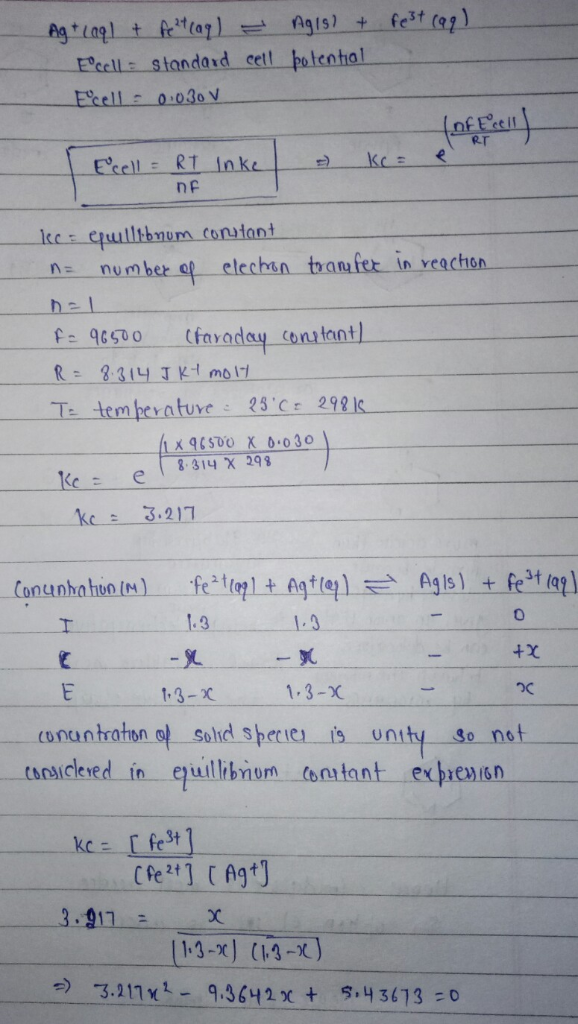 Ag+ (aq) + Fe2+(aq) ⇌ Ag(s) + Fe3+ (aq)
E°cell = standard cell potential
E°cell = 0.030 V
E°cell = RT/nF ln Kc ⇒ Kc = e^(nFE°cell/RT)
Kc = equillibrium constant
n = number of electron transfer in reaction
n = 1
F = 96500 (faraday constant)
R = 8.314 J K-1 mol-1
T = temperature = 25°C = 298 K
Kc = e^(1 x 96500 x 0.030 / 8.314 x 298)
Kc = 3.217
Concentration (M) Fe2+(aq) + Ag+(aq) ⇌ Ag(s) + Fe3+ (aq)
I 1.3 1.3 - 0
C -x -x - +x
E 1.3-x 1.3-x - x
concentration of solid species is unity so not
considered in equillibrium constant expression
Kc = [Fe3+] / [Fe2+] [Ag+]
3.217 = x / (1.3-x) (1.3-x)
⇒ 3.217x² - 9.3642x + 5.43673 = 0